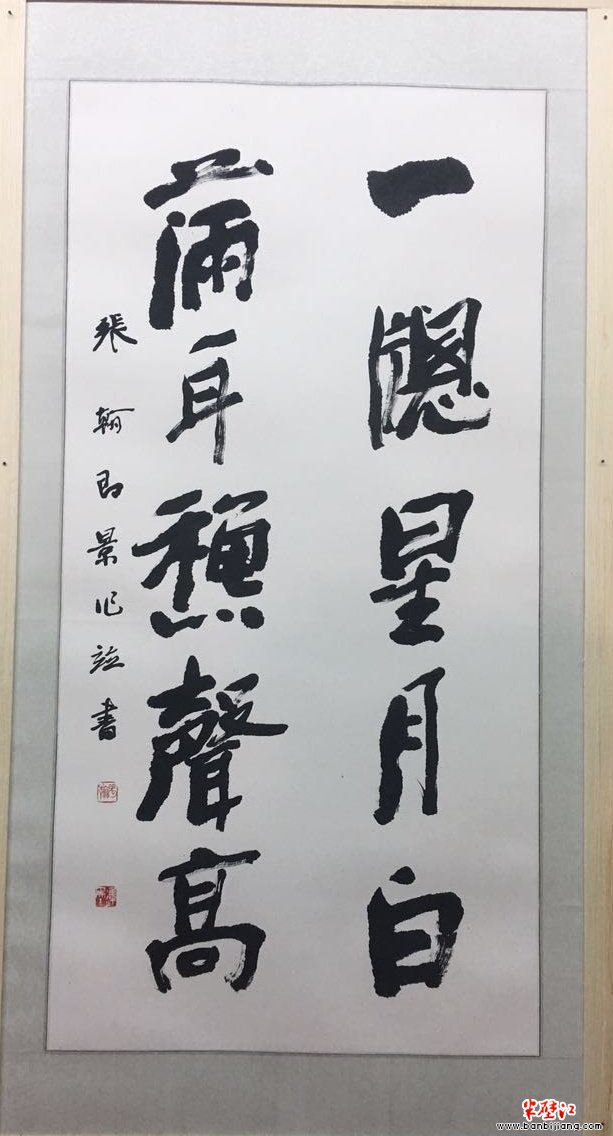 一牕星月白
滿耳龝聲高
張翰即景作並書
半壁江
www.banbijiang.com